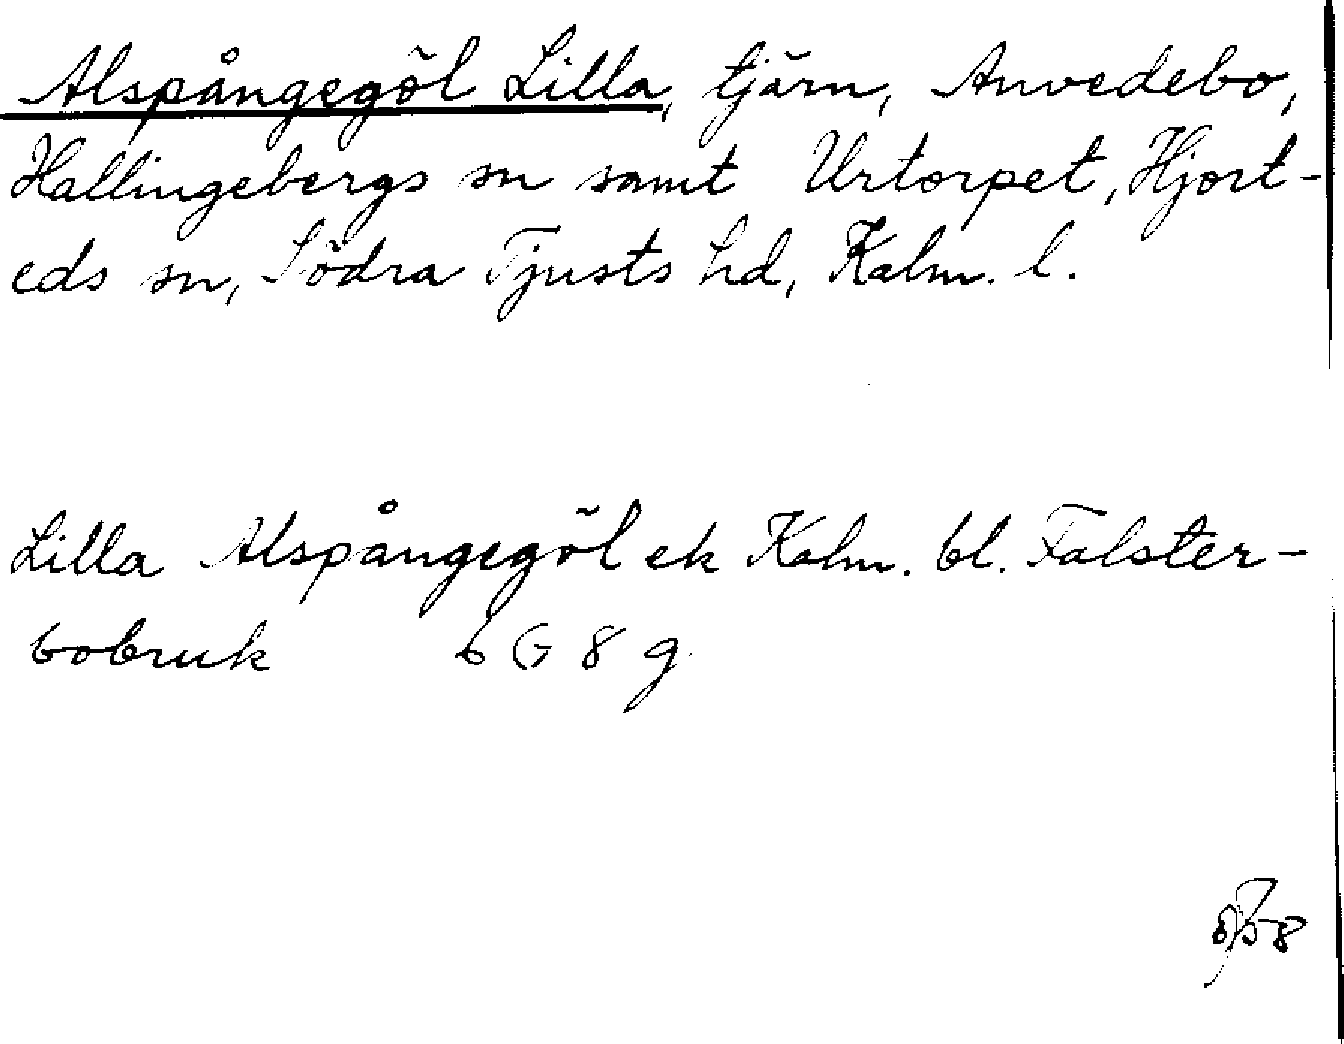 Alspångegöl Lilla, tjärn, Anvedebo,
Hallingebergs sn samt Urtorpet, Hjort-
eds sn, Södra Tjusts hd, Kalm. l.
Lilla Alspångegöl ek Kalm. bl. Falster-
bobruk 6 G 8 g